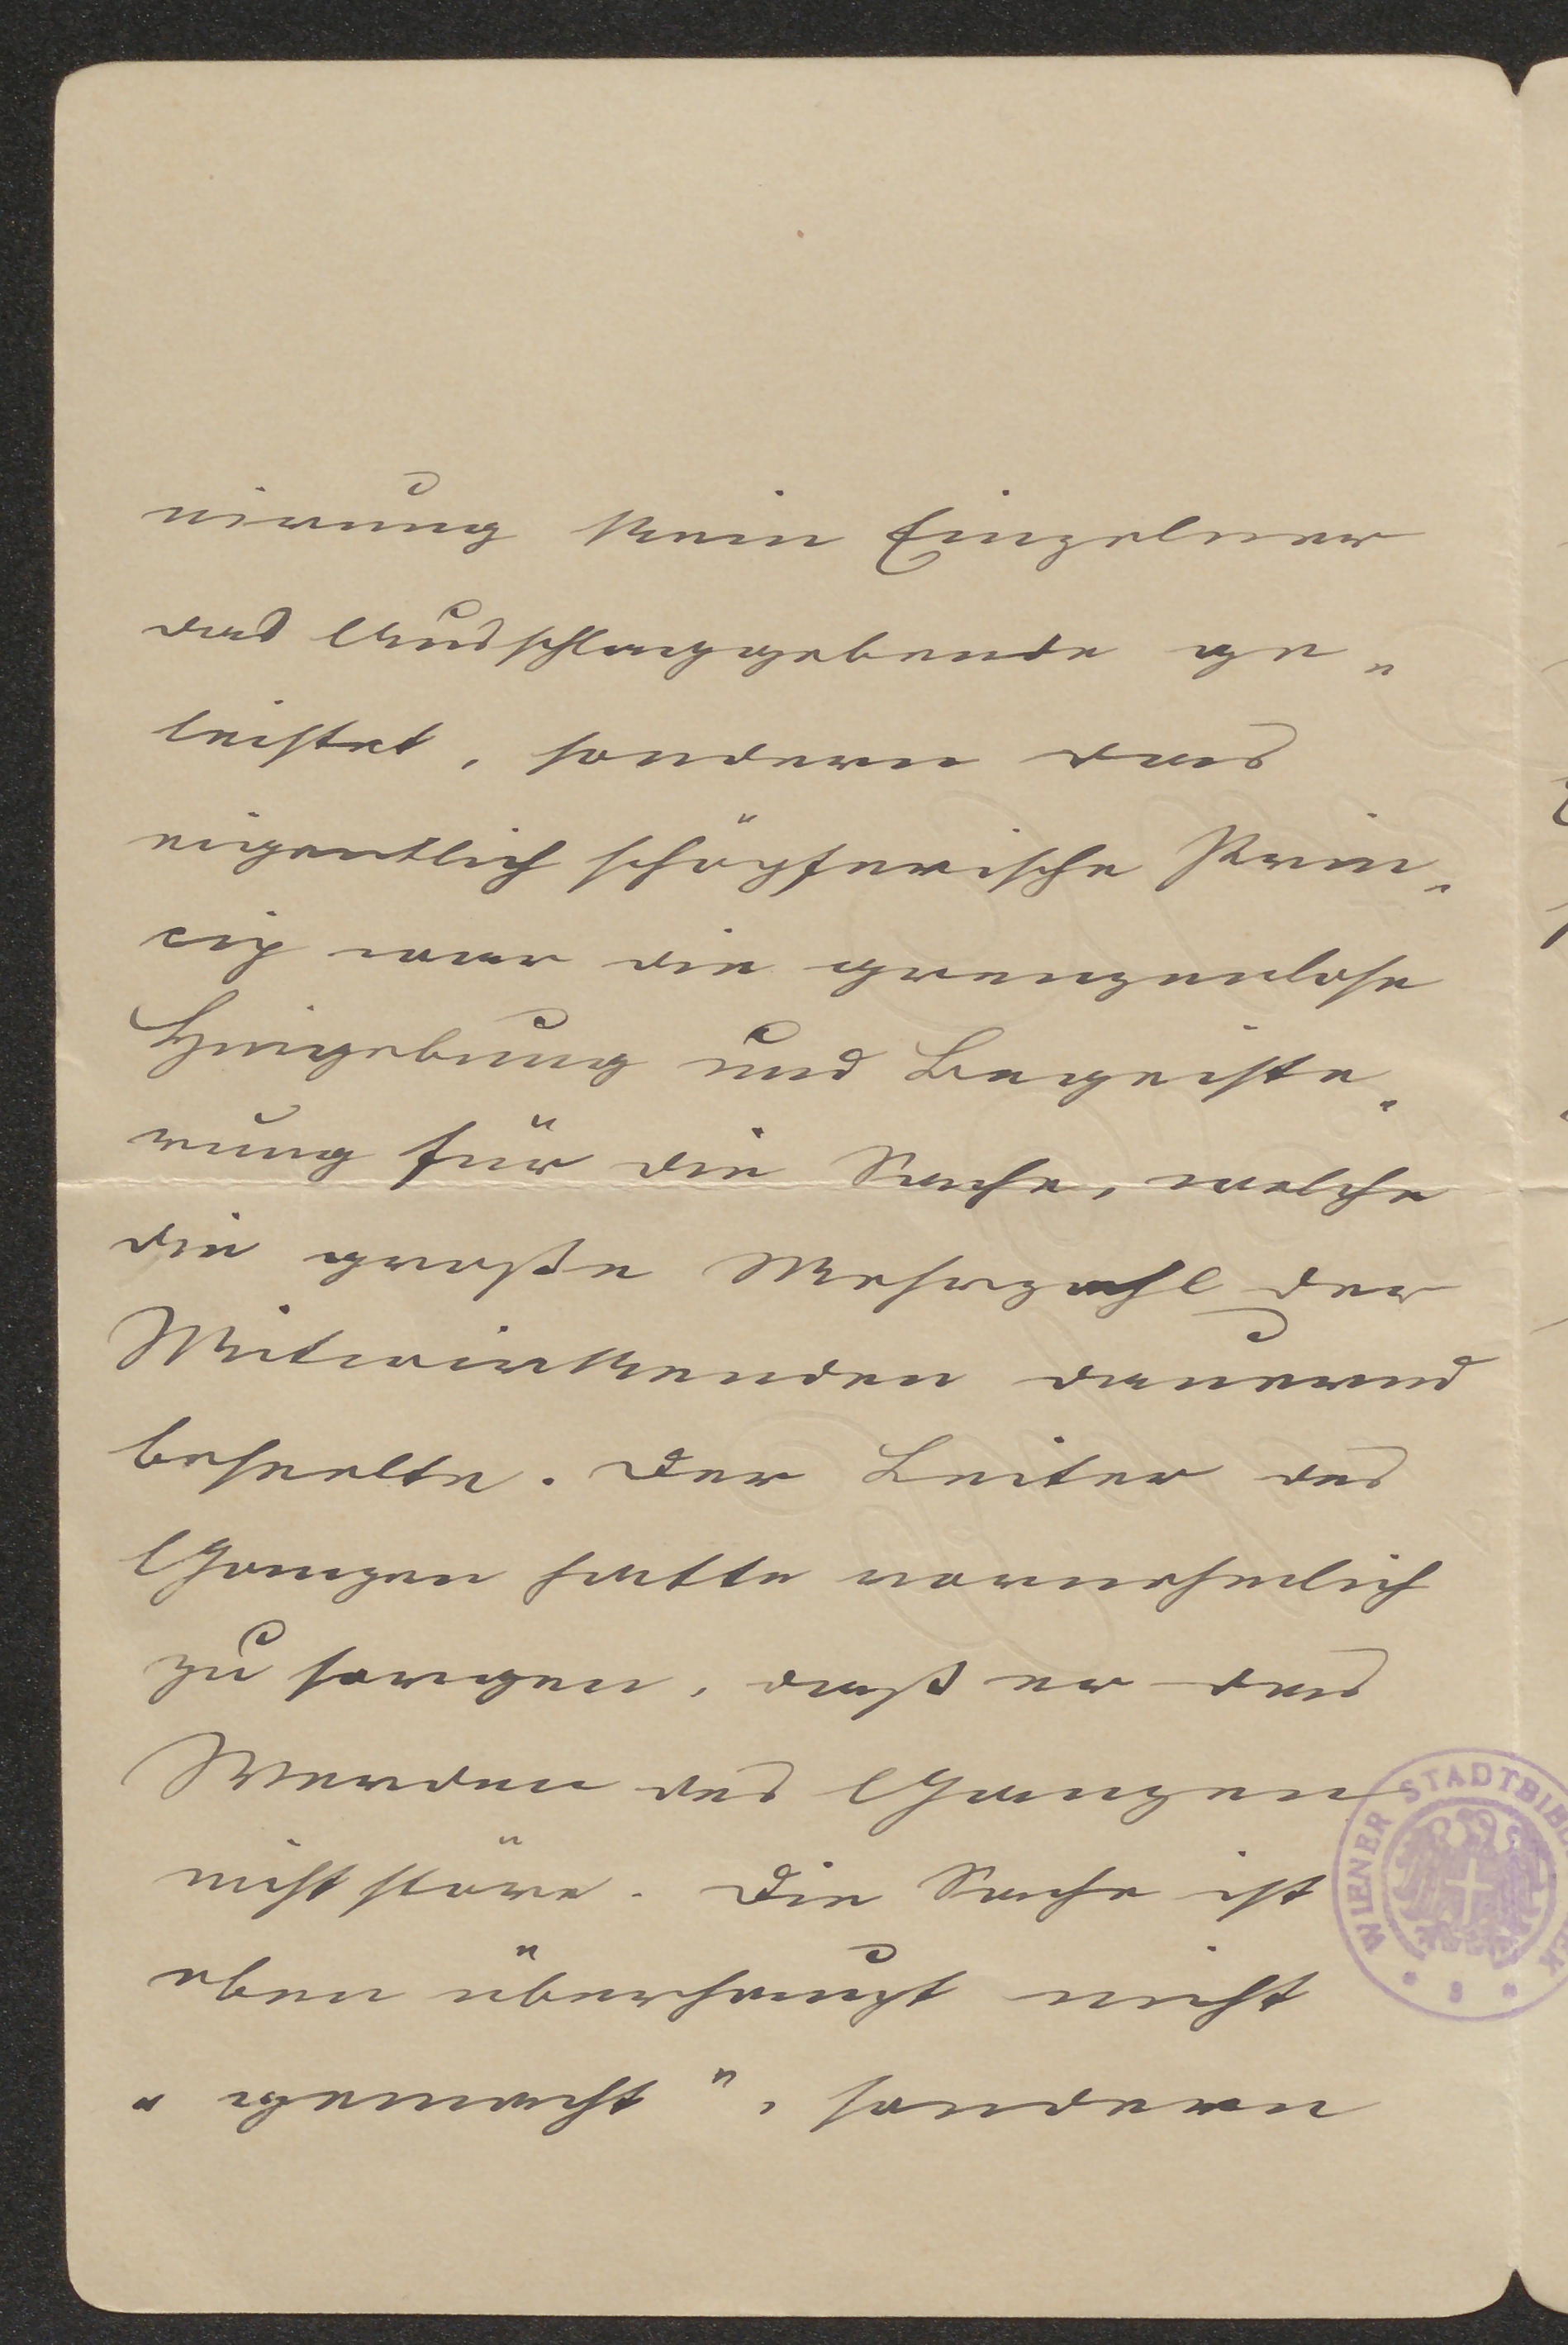 nirung kein Einzelner
das Ausschlaggebende ge„
leistet, sondern das
eigentlich schöpferische Prin„
cip war die grenzenlose
Hingebung und Begeiste„
rung für die Sache, welche
die große Mehrzahl der
Mitwirkenden dauernd
beseelte. Der Leiter des
Ganzen hatte vornehmlich
zu sorgen, daß er das
Werden des Ganzen
nicht störe. Die Sache ist
eben überhaupt nicht
„gemacht“, sondern
WIENER STADTBIB